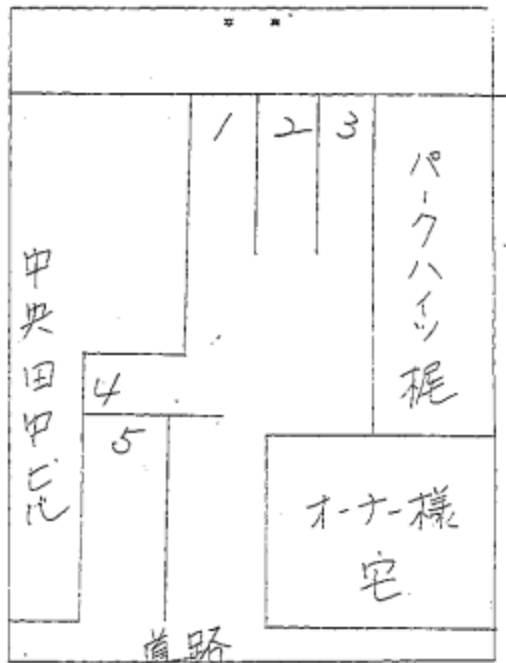 写真
1
2
3
パークハイツ梶
中央田中ビル
4
5
オーナー様
宅
道路